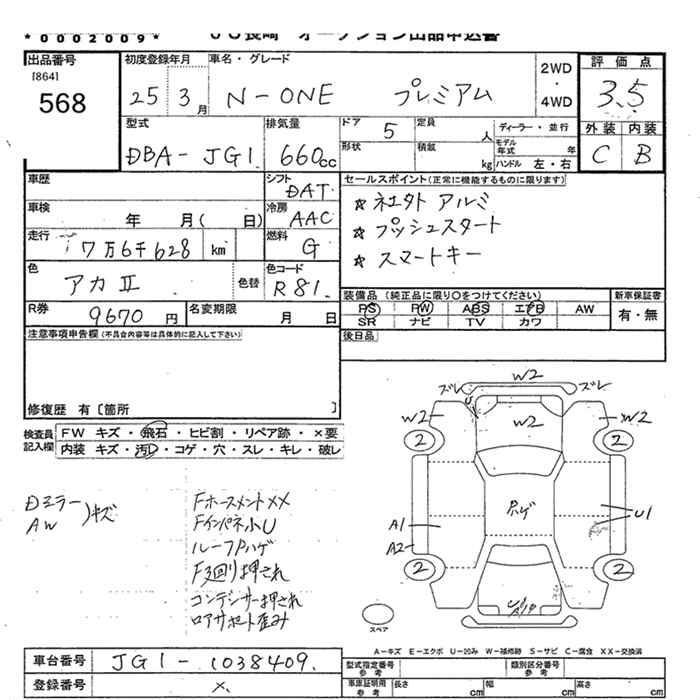 *0002009* JU長崎 オークション出品申込書
出品番号 初度登録年月 車名・グレード 2WD・4WD 評価点
[864]
568 25 3月 N-ONE プレミアム 3.5
型式 排気量 ドア 5 定員 人 ディーラー・並行 外装 内装
形状 積載 kg モデル年式 年
DBA-JG1 660cc ハンドル 左・右 C B
車歴 シフト DAT セールスポイント(正常に機能するものに限ります)
車検 年 月( 日) 冷房 AAC ☆ネエタト アルミ
走行 7万6千628 km 燃料 G ☆プッシュスタート
色 アカⅡ 色替 色コード R81. ☆スマートキー
R券 9670円 名変期限 月 日 装備品(純正品に限り○をつけてください) 新車保証書
PS PW ABS エアB AW 有・無
SR ナビ TV カワ
注意事項申告欄(不具合内容等は具体的に記入して下さい) 後日品
修復歴 有〔箇所 〕
検査員記入欄 FW キズ・飛石・ヒビ割・リペア跡・×要
内装 キズ・汚レ・コゲ・穴・スレ・キレ・破レ
Dミラー
AW )キズ
Fホースメント××
Fインパネ小U
ルーフPハゲ
F廻り押され
コンデンサー押され
ロアサポート歪み
ズレ W2 ズレ
W2 U W2 W2
2 2
Pハゲ
A1 U1
A2
2 2
スペア
A-キズ E-エクボ U-凹み W-補修跡 S-サビ C-腐食 XX-交換済
車台番号 JG1-1038409. 型式指定番号 参考 類別区分番号 参考
登録番号 ×. 車庫証明用 参考 長さ cm 幅 cm 高さ cm